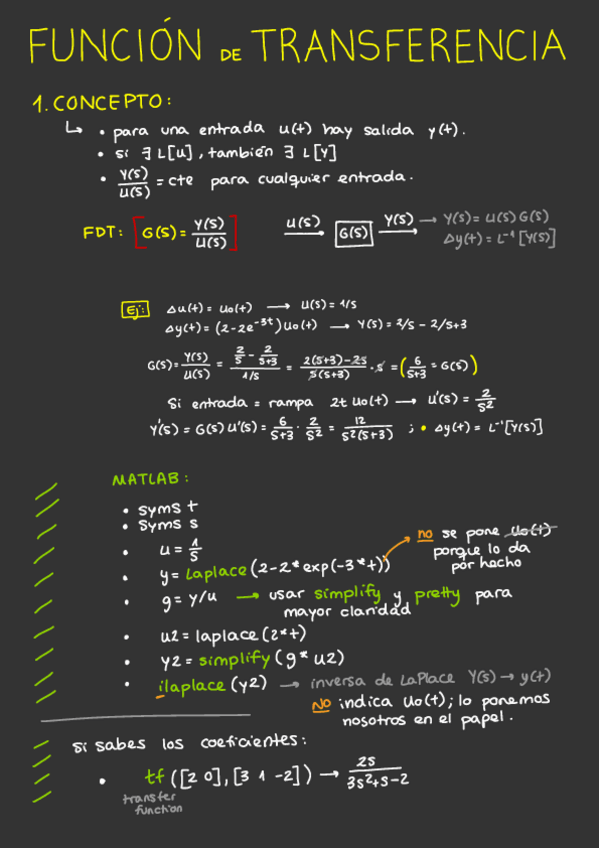 FUNCIÓN DE TRANSFERENCIA
1. CONCEPTO:
↳ • para una entrada u(t) hay salida y(t).
• si ∃ L[u], también ∃ L[y]
• Y(s)/U(s) = cte para cualquier entrada.
FDT: [G(s) = Y(s)/U(s)] U(s) → G(s) Y(s) → Y(s) = U(s) G(s)
Δy(t) = L⁻¹[Y(s)]
Ej: Δu(t) = u₀(t) → U(s) = 1/s
Δy(t) = (2-2e^-3t) u₀(t) → Y(s) = 2/s - 2/s+3
G(s) = Y(s)/U(s) = (2/s - 2/s+3)/(1/s) = (2(s+3)-2s)/(s(s+3)) · s = (6/(s+3) = G(s))
Si entrada = rampa 2t u₀(t) → U'(s) = 2/s²
Y'(s) = G(s) U'(s) = 6/(s+3) · 2/s² = 12/(s²(s+3)) ; • Δy(t) = L⁻¹[Y(s)]
MATLAB:
• syms t
• syms s
• u = 1/s
• y = Laplace(2-2*exp(-3*t))
no se pone u₀(t)
porque lo da
por hecho
• g = y/u → usar simplify y pretty para
mayor claridad
• u2 = laplace(2*t)
• y2 = simplify(g*u2)
• ilaplace(y2) → inversa de LaPlace Y(s) → y(t)
NO indica u₀(t); lo ponemos
nosotros en el papel.
Si sabes los coeficientes:
• tf([2 0],[3 1 -2]) → 2s/(3s²+s-2)
transfer
function